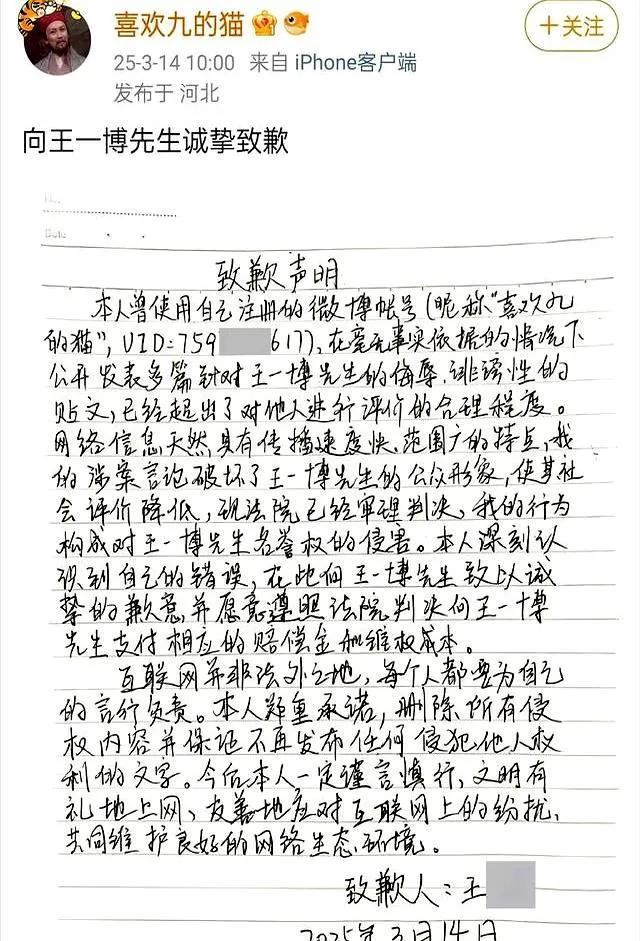 喜欢九的猫
+关注
25-3-14 10:00 来自 iPhone客户端
发布于 河北
向王一博先生诚挚致歉
No.
Date
致歉声明
本人曾使用自己注册的微博帐号(昵称“喜欢九
的猫”, UID:759 617), 在毫无事实依据的情况下
公开发表多篇针对王一博先生的侮辱、诽谤性的
贴文,已经超出了对他人进行评价的合理程度。
网络信息天然具有传播速度快、范围广的特点,我
的涉案言论破坏了王一博先生的公众形象,使其社
会评价降低,现法院已经审理判决,我的行为
构成对王一博先生名誉权的侵害。本人深刻认
识到自己的错误,在此向王一博先生致以诚
挚的歉意,并愿意遵照法院判决向王一博
先生支付相应的赔偿金和维权成本。
互联网并非法外之地,每个人都要为自己
的言行负责。本人郑重承诺,删除所有侵
权内容并保证不再发布任何侵犯他人权
利的文字。今后本人一定谨言慎行,文明有
礼地上网、友善地应对互联网上的纷扰,
共同维护良好的网络生态环境。
致歉人:王
2025年3月14日